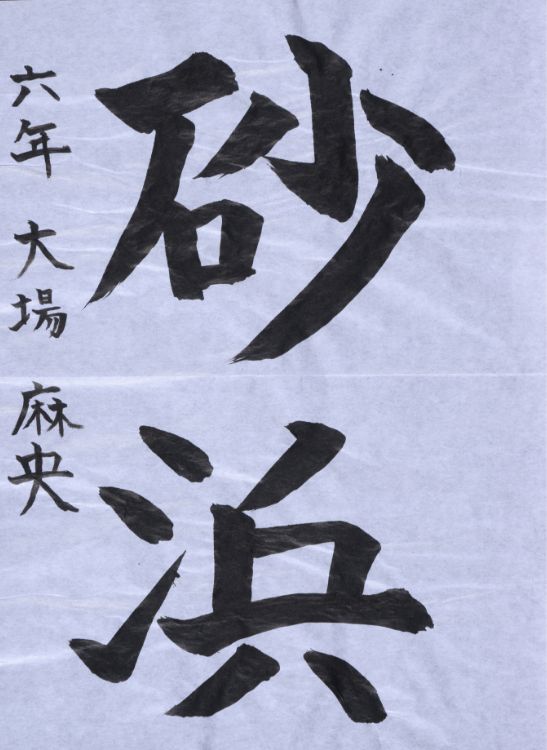 砂浜
六年 大場 麻央